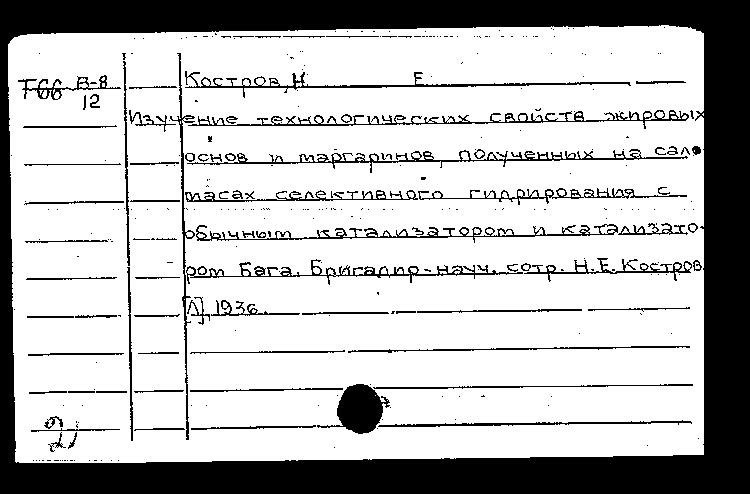 Т66 В-8
12
Костров, Н. Е.
Изучение технологических свойств жировых
основ и маргаринов, полученных на сало-
масах селективного гидрирования с
обычным катализатором и катализато-
ром Бага. Бригадир-науч. сотр. Н.Е. Костров.
[Л], 1936.
2